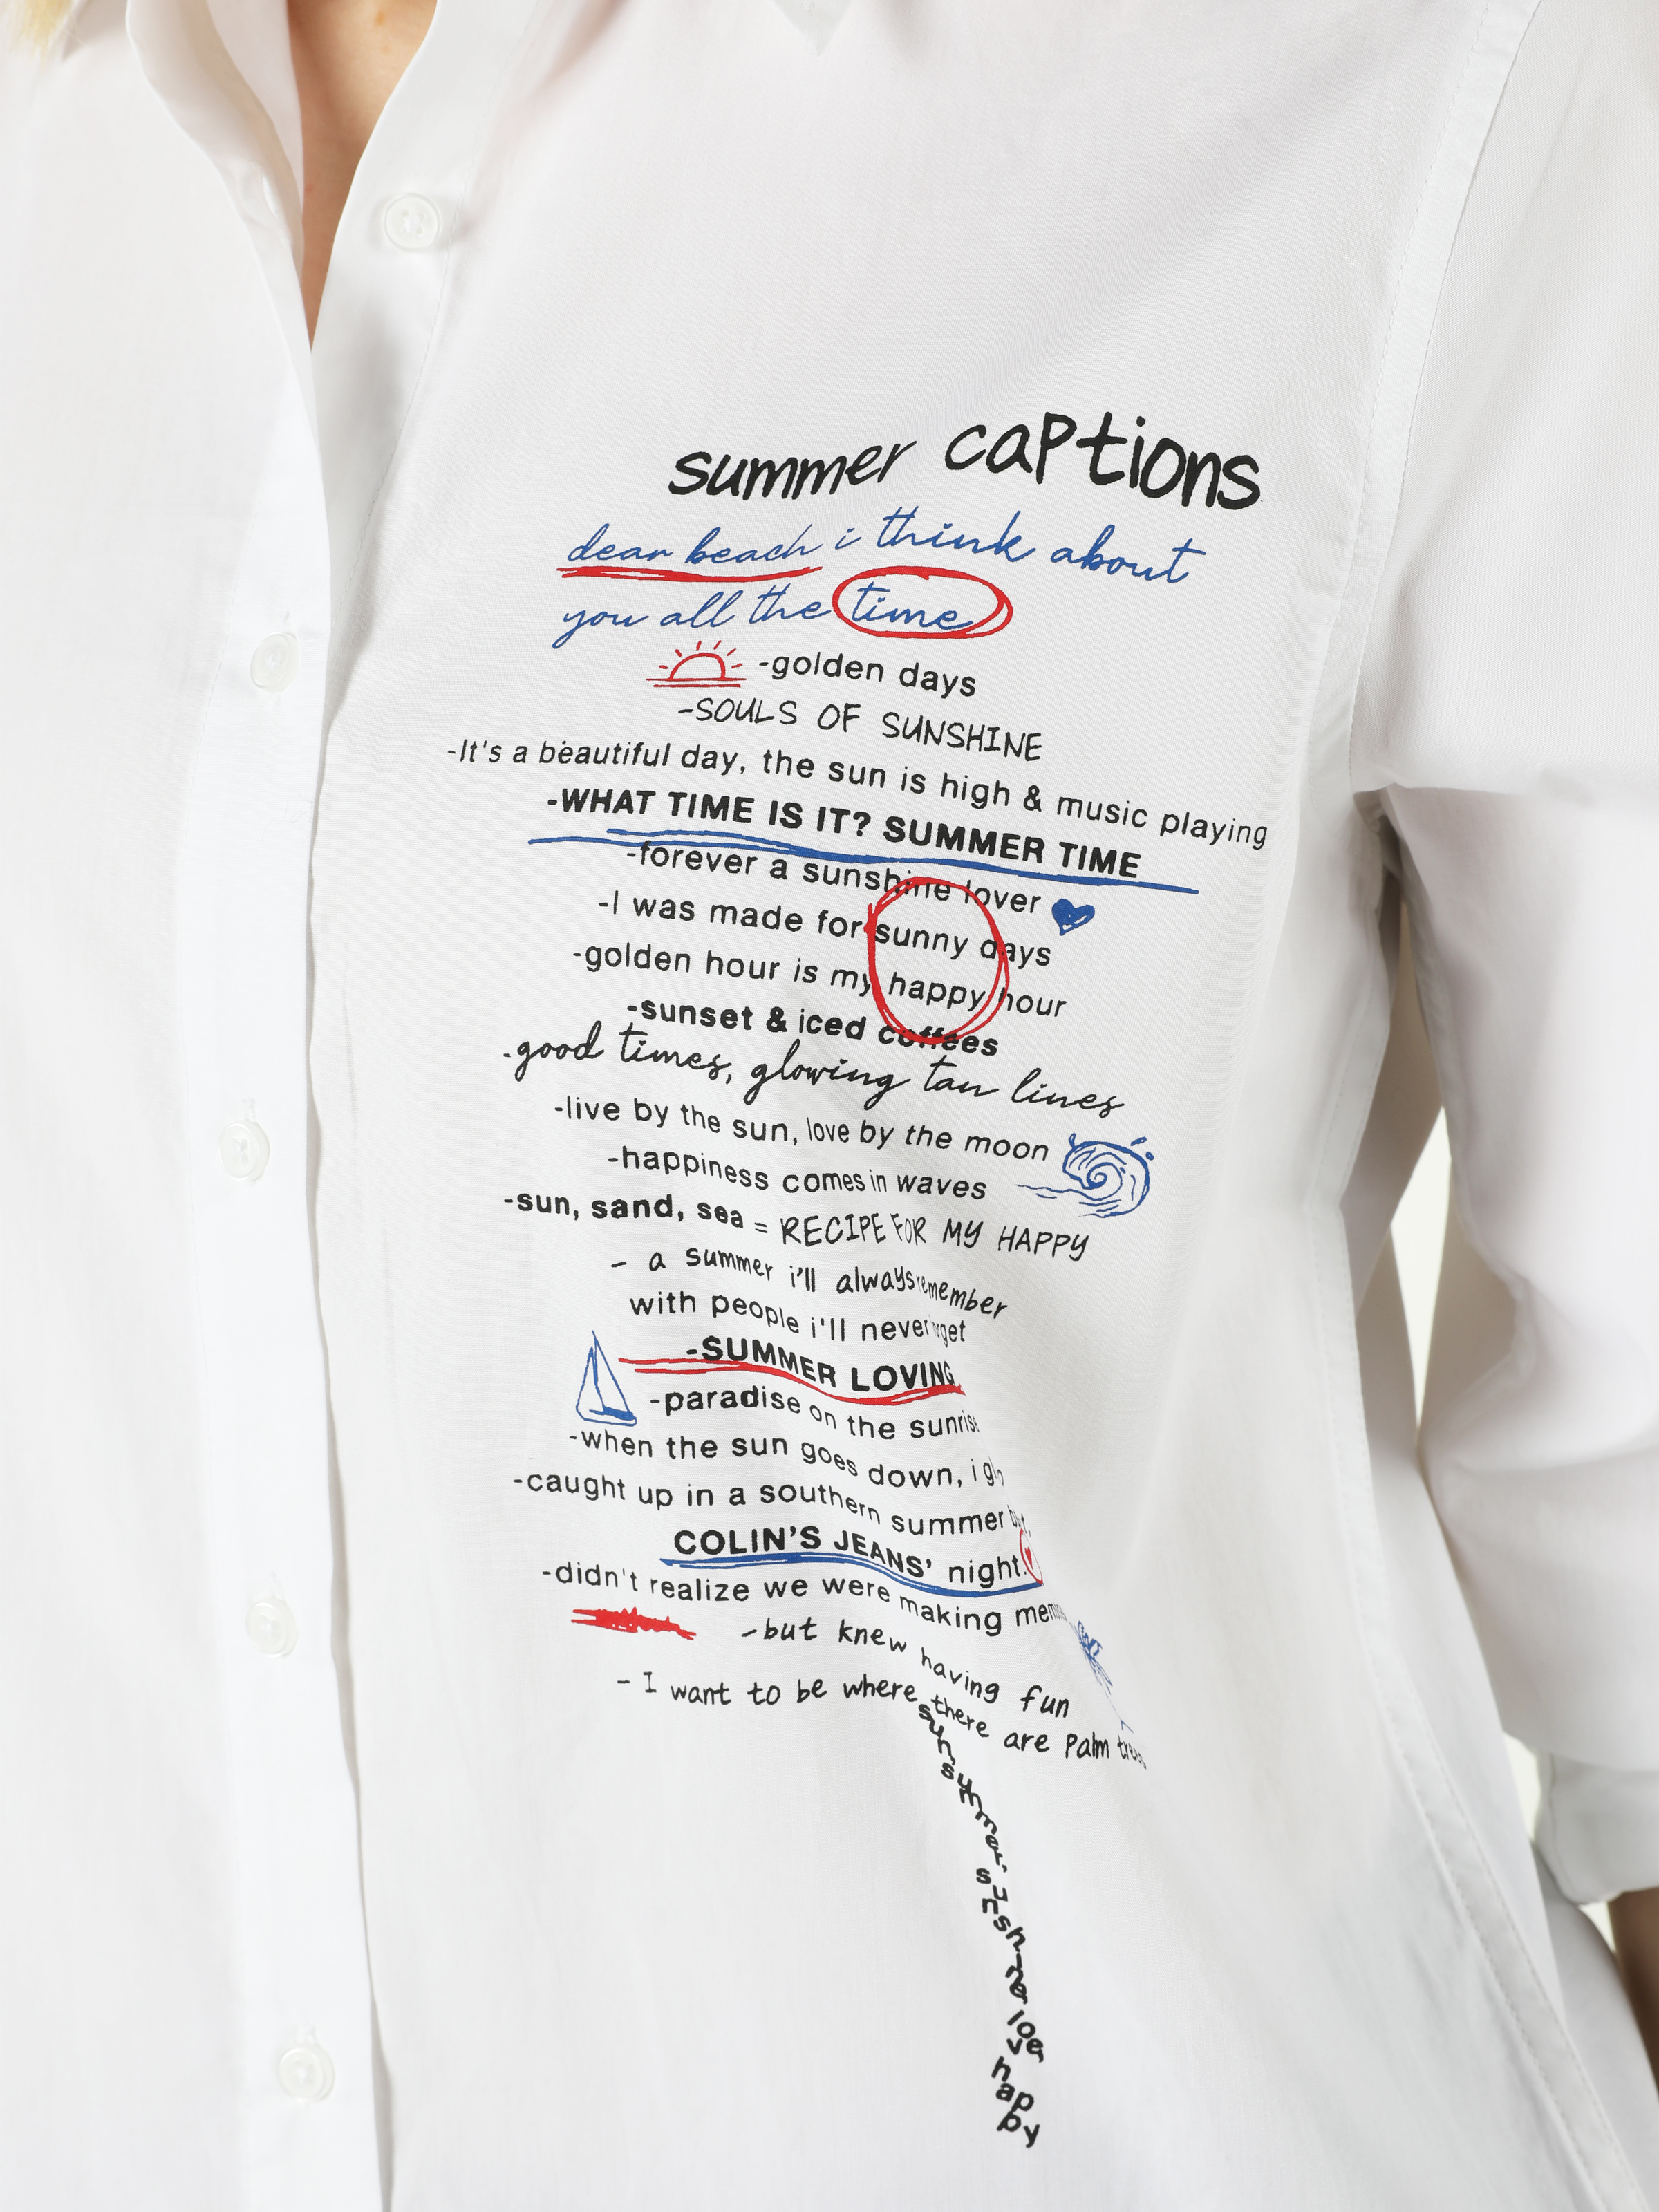 summer captions
dear beach i think about
you all the time
-golden days
-SOULS OF SUNSHINE
-It's a beautiful day, the sun is high & music playing
-WHAT TIME IS IT? SUMMER TIME
-forever a sunshine lover
-I was made for sunny days
-golden hour is my happy hour
-sunset & iced coffees
-good times, glowing tan lines
-live by the sun, love by the moon
-happiness comes in waves
-sun, sand, sea = RECIPE FOR MY HAPPY
- a summer i'll always remember
with people i'll never
-SUMMER LOVING
-paradise on the
-when the sun goes down, i
-caught up in a southern summer
COLIN'S JEANS' night.
-didn't realize we were making
-but knew having fun
- I want to be where there are palm trees
sun summer sunshine love happy